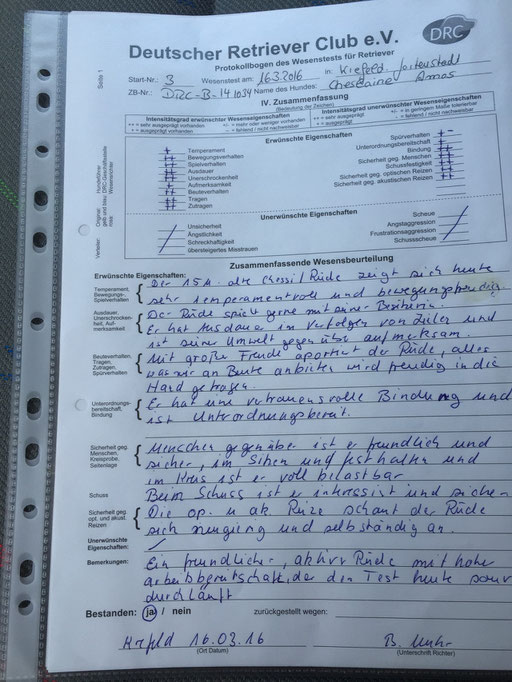 DRC
Deutscher Retriever Club e.V.
Protokollbogen des Wesenstests für Retriever
Seite 1
Start-Nr.: 3 Wesenstest am: 16.3.2016 in: Krefeld
ZB-Nr.: DRC-B-141034 Name des Hundes: Amos
IV. Zusammenfassung
(Bedeutung der Zeichen)
Intensitätsgrad erwünschter Wesenseigenschaften
++ = sehr ausgeprägt vorhanden
+ = ausgeprägt vorhanden
+/- = mehr oder weniger vorhanden
- = fehlend / nicht nachweisbar
Intensitätsgrad unerwünschter Wesenseigenschaften
Erwünschte Eigenschaften
Temperament
Bewegungsverhalten
Spielverhalten
Ausdauer
Unerschrockenheit
Aufmerksamkeit
Beuteverhalten
Tragen
Zutragen
Spürverhalten +-
Unterordnungsbereitschaft
Bindung
Sicherheit geg. Menschen
Schussfestigkeit
Sicherheit geg. optischen Reizen
Sicherheit geg. akustischen Reizen
Unerwünschte Eigenschaften
Unsicherheit
Ängstlichkeit
Schreckhaftigkeit
übersteigertes Misstrauen
Scheue
Angstaggression
Frustrationsaggression
Schussscheue
Verteiler: Original:
gelb und blau: DRC-Geschäftsstelle
rosa: Wesensrichter
Zusammenfassende Wesensbeurteilung
Erwünschte Eigenschaften:
Temperament,
Bewegungs-
Spielverhalten
Der alte Rüde zeigt sich heute
sehr temperamentvoll und bewegungsfreudig.
Ausdauer,
Unerschrocken-
heit, Auf-
merksamkeit
Der Rüde spielt gerne mit seiner
Er hat Ausdauer im Verfolgen von Zielen und
ist seiner Umwelt gegenüber aufmerksam.
Beuteverhalten,
Tragen,
Zutragen,
Spürverhalten
Mit große Freude apportiert der Rüde, alles
was wir an Beute anbieten wird freudig in die
Hand getragen.
Unterordnungs-
bereitschaft,
Bindung
Er hat eine vertrauensvolle Bindung und
ist Unterordnungsbereit.
Sicherheit geg.
Menschen,
Kreisprobe,
Seitenlage
Menschen gegenüber ist er freundlich und
sicher, im Sitzen und festhalten und
im Kreis ist er voll belastbar
Schuss
Beim Schuss ist er und sicher
Sicherheit geg.
opt. und akust.
Reizen
Die op. u ak. Reize schaut der Rüde
sich neugierig und selbständig an.
Unerwünschte
Eigenschaften:
Bemerkungen:
Ein freundlicher, aktiver Rüde mit hoher
arbeitsbereitschaft, der den Test heute
durchläuft
Bestanden: ja / nein zurückgestellt wegen:
Krefeld 16.03.16
(Ort Datum)
B.
(Unterschrift Richter)